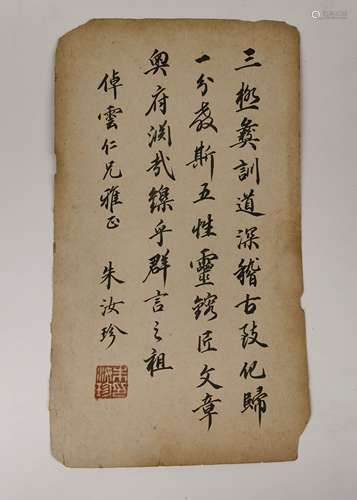 三極彝訓道深稽古致化歸
一分教斯五性靈鎔匠文章
奧府渊哉鑠乎群言之祖
倬雲仁兄雅正 朱汝珍